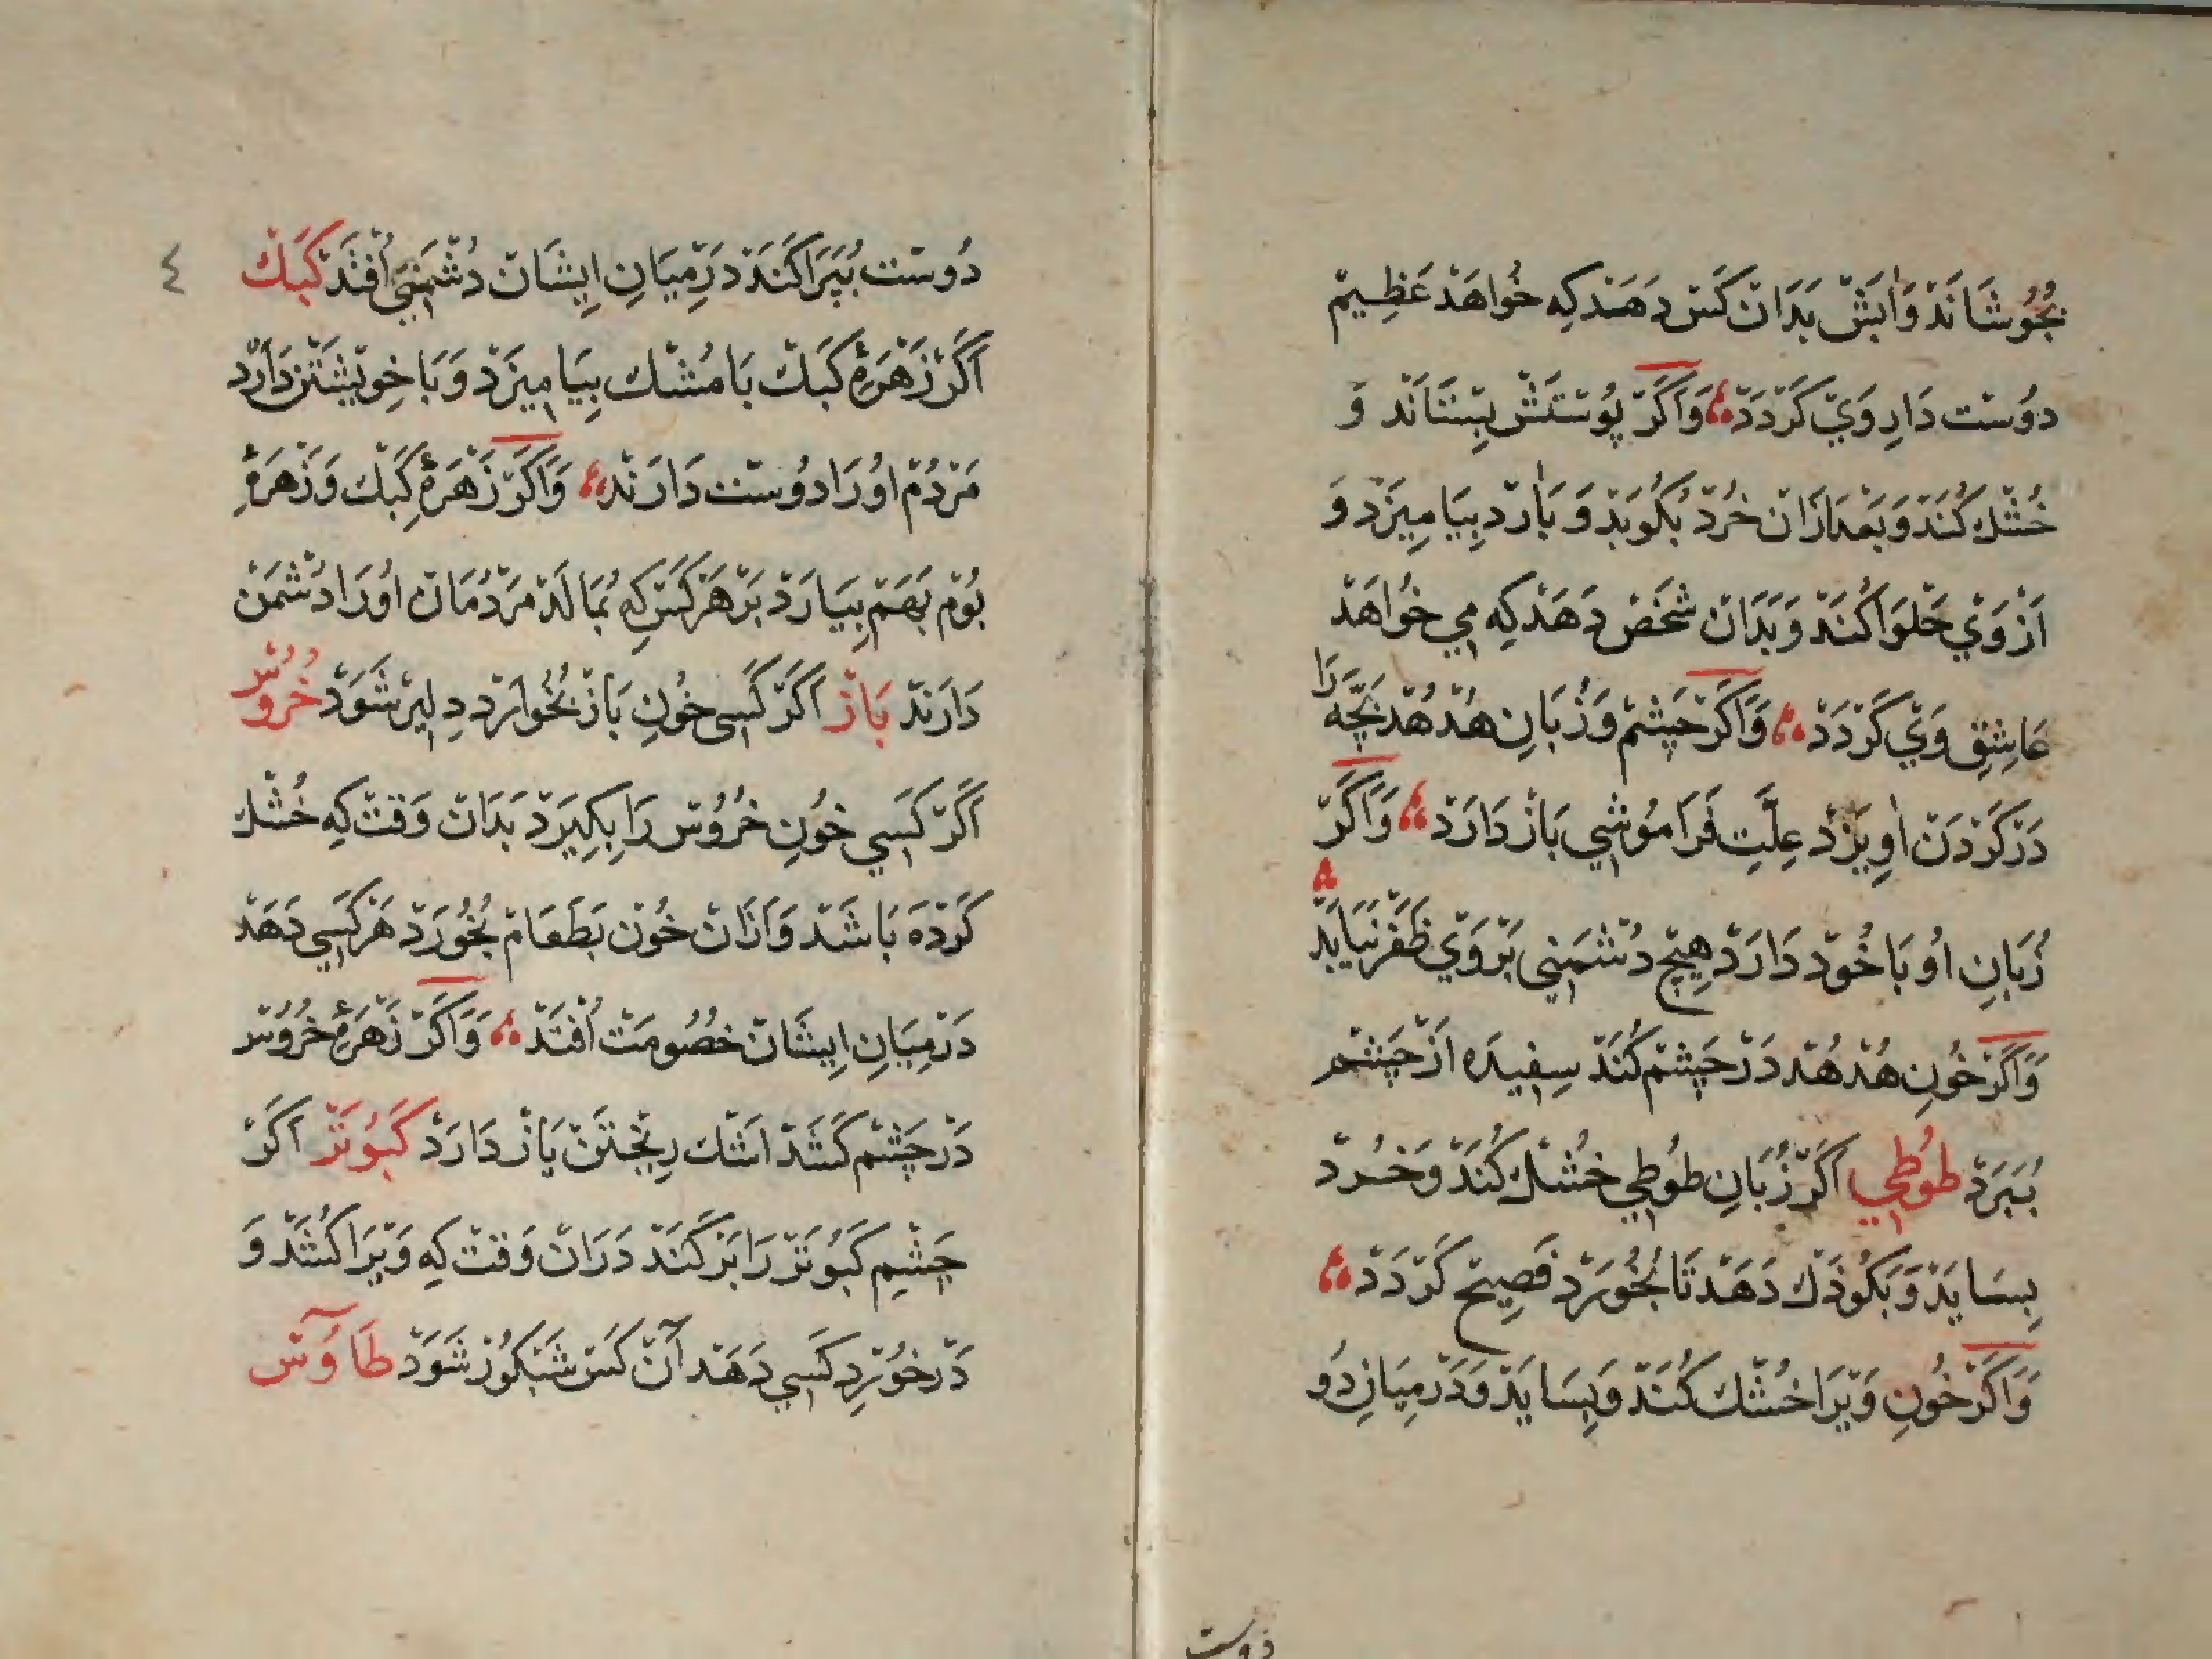 بجُوشانَد وَ آبَش بَدان کَس دهَند کِه خواهَد عَظِیم
دوُست دَارِ وَی کَردَد وَاکَر پُوستَش بِستانَد وَ
خُشك کُنَد وَ بَعدازان خُرد بکُوبَد وَ بآرد بِیامیزَد وَ
اَز وَی حَلوَا کُنَد وَ بَدَان شَخص دهَد کِه می خواهَد
عَاشِقِ وَی کَردَد وَاکَر چَشم وَ زُبَانِ هُدهُد بَچّه رَا
دَر کَردَن آویزَد عِلَّتِ فَرَامُوشی بَاز دَارَد وَاکَر
زُبَانِ اوُ بَا خُود دَارَد هِیچ دُشمَنی بَر وَی ظَفَر نَیابَد
وَاکَر خُونِ هُدهُد دَر چَشم کُنَد سِفِیدَه اَز چَشم
بُبَرَد طوُطی اَکَر زُبَانِ طوُطی خُشك کُنَد وَ خُرد
بِسَایَد وَ بَکوُدَك دَهَد تَا بخُورَد فَصِیح کَردَد
وَاکَر خُونِ وَیرَا خُشك کُنَد وَ بِسَایَد وَ دَر مِیَانِ دُو
دوست
٤
دُوست بُپَرَاکَنَد دَر مِیَانِ ایشَان دُشمَنی اُفتَد کَبك
اَکَر زَهرَهٔ کَبك بَا مُشك بِیَامیزَد وَ بَا خِویشتَن دَارَد
مَردُم اوُرَا دوُست دَارَند وَاکَر زَهرَهٔ کَبك وَ زَهرَهٔ
بُوم بَهَم بِیَارَد بَر هَر کَس کِه بُمَالَد مَردُمَان اوُرَا دُشمَن
دَارَند بَاز اَکَر کَسی خُونِ بَاز بُخوارَد دِلیر شَوَد خُرُوس
اَکَر کَسی خُونِ خُرُوس رَا بِکِیرَد بَدَان وَقت کِه خُشك
کَردَه بَاشَد وَ اَزان خُون بَطَعَام بُخُورَد هَر کَسی دَهَد
دَر مِیَانِ ایشَان خُصُومَت اُفتَد وَاکَر زَهرَهٔ خُرُوس
دَر چَشم کَشَد اَشك رِیختَن بَاز دَارَد کَبُوتَر اَکَر
چَشمِ کَبُوتَر رَا بَر کَنَد دَران وَقت کِه وَیرَا کُشَد وَ
دَر خُورِد کَسی دَهَد آن کَس شَبکُور شَوَد طَاوُس